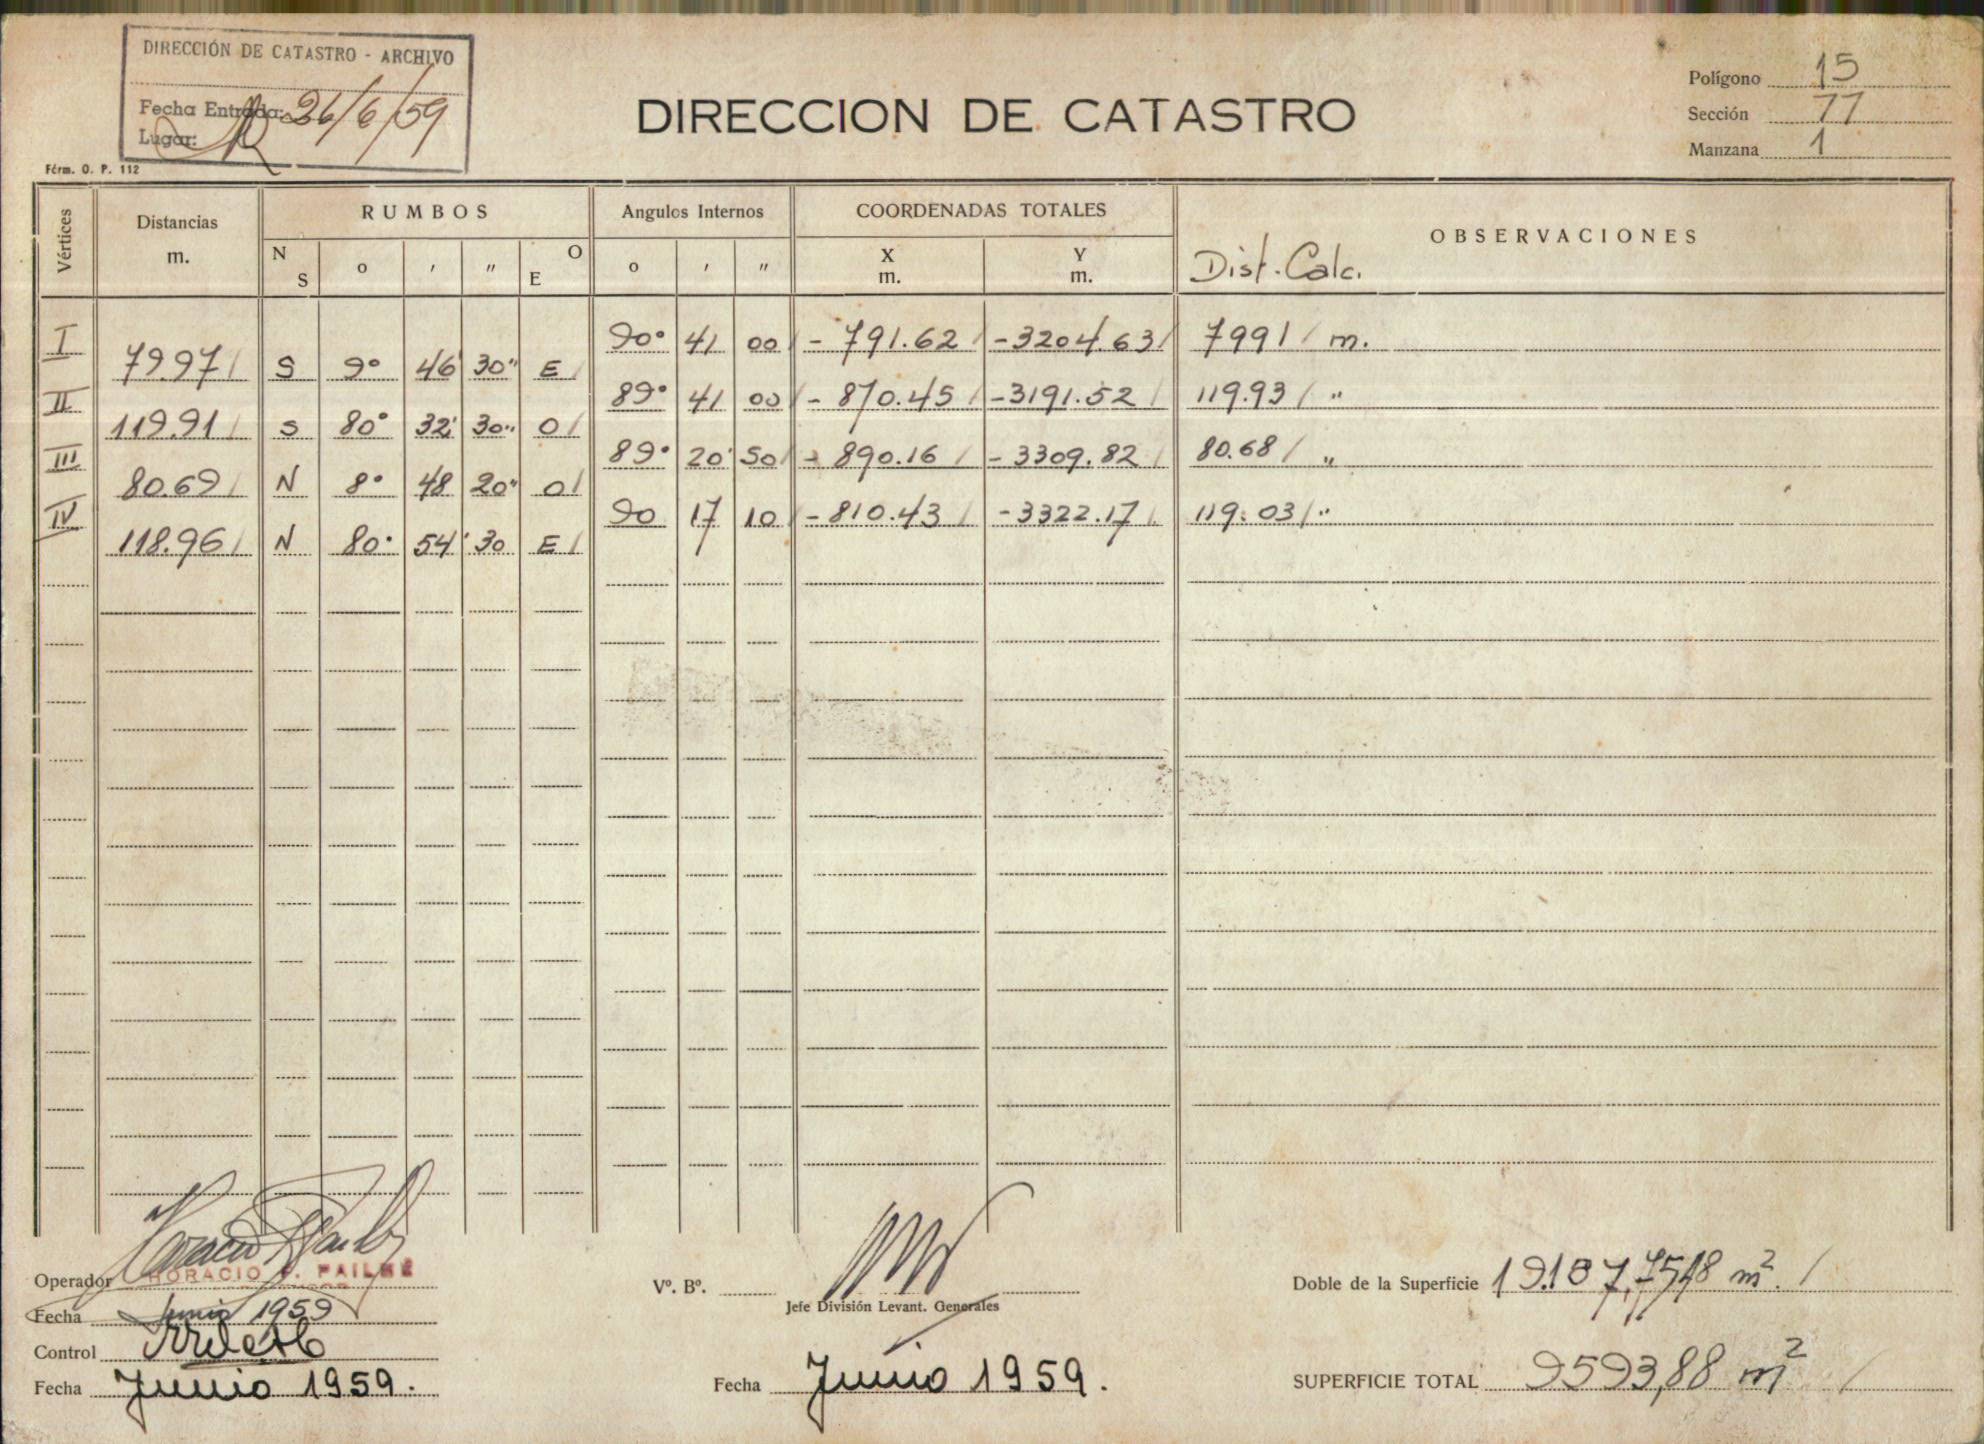 DIRECCIÓN DE CATASTRO - ARCHIVO
Fecha Entrada: 26/6/59
Lugar:
Fórm. O. P. 112
DIRECCION DE CATASTRO
Polígono 15
Sección 77
Manzana 1
Vértices Distancias m. RUMBOS Angulos Internos COORDENADAS TOTALES OBSERVACIONES
N S o ' " O E o ' " X m. Y m. Dist. Calc.
I 90° 41 00 - 791.62 -3204.63 7991 m.
79.97 S 9° 46' 30" E
II 89° 41 00 - 870.45 -3191.52 119.93 "
119.91 S 80° 32' 30" O
III 89° 20' 50 - 890.16 - 3309.82 80.68 "
80.69 N 8° 48 20" O
IV 90 17 10 - 810.43 - 3322.17 119.03 "
118.96 N 80° 54' 30 E
Operador HORACIO
Fecha Junio 1959
Control
Fecha Junio 1959.
Vº. Bº.
Jefe División Levant. Generales
Fecha Junio 1959.
Doble de la Superficie 19.187,7518 m².
SUPERFICIE TOTAL 9593,88 m²